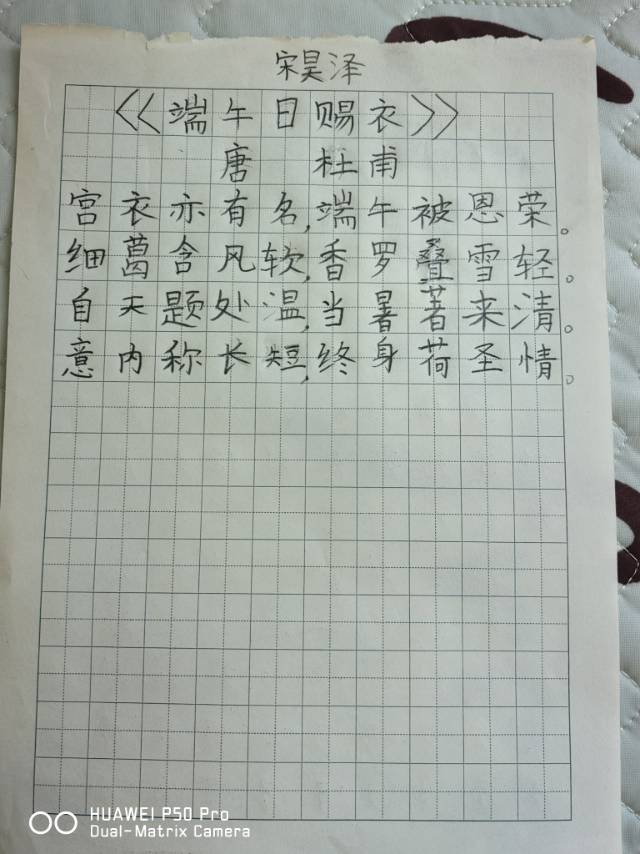 宋昊泽
<<端午日赐衣>>
唐 杜甫
宫衣亦有名,端午被恩荣。
细葛含风软,香罗叠雪轻。
自天题处温,当暑著来清。
意内称长短,终身荷圣情。
HUAWEI P50 Pro
Dual-Matrix Camera